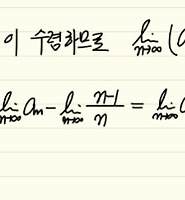 이 수렴하므로 lim n→∞ (a
lim n→∞ an - lim n→∞ n-1/n = lim n→∞ a